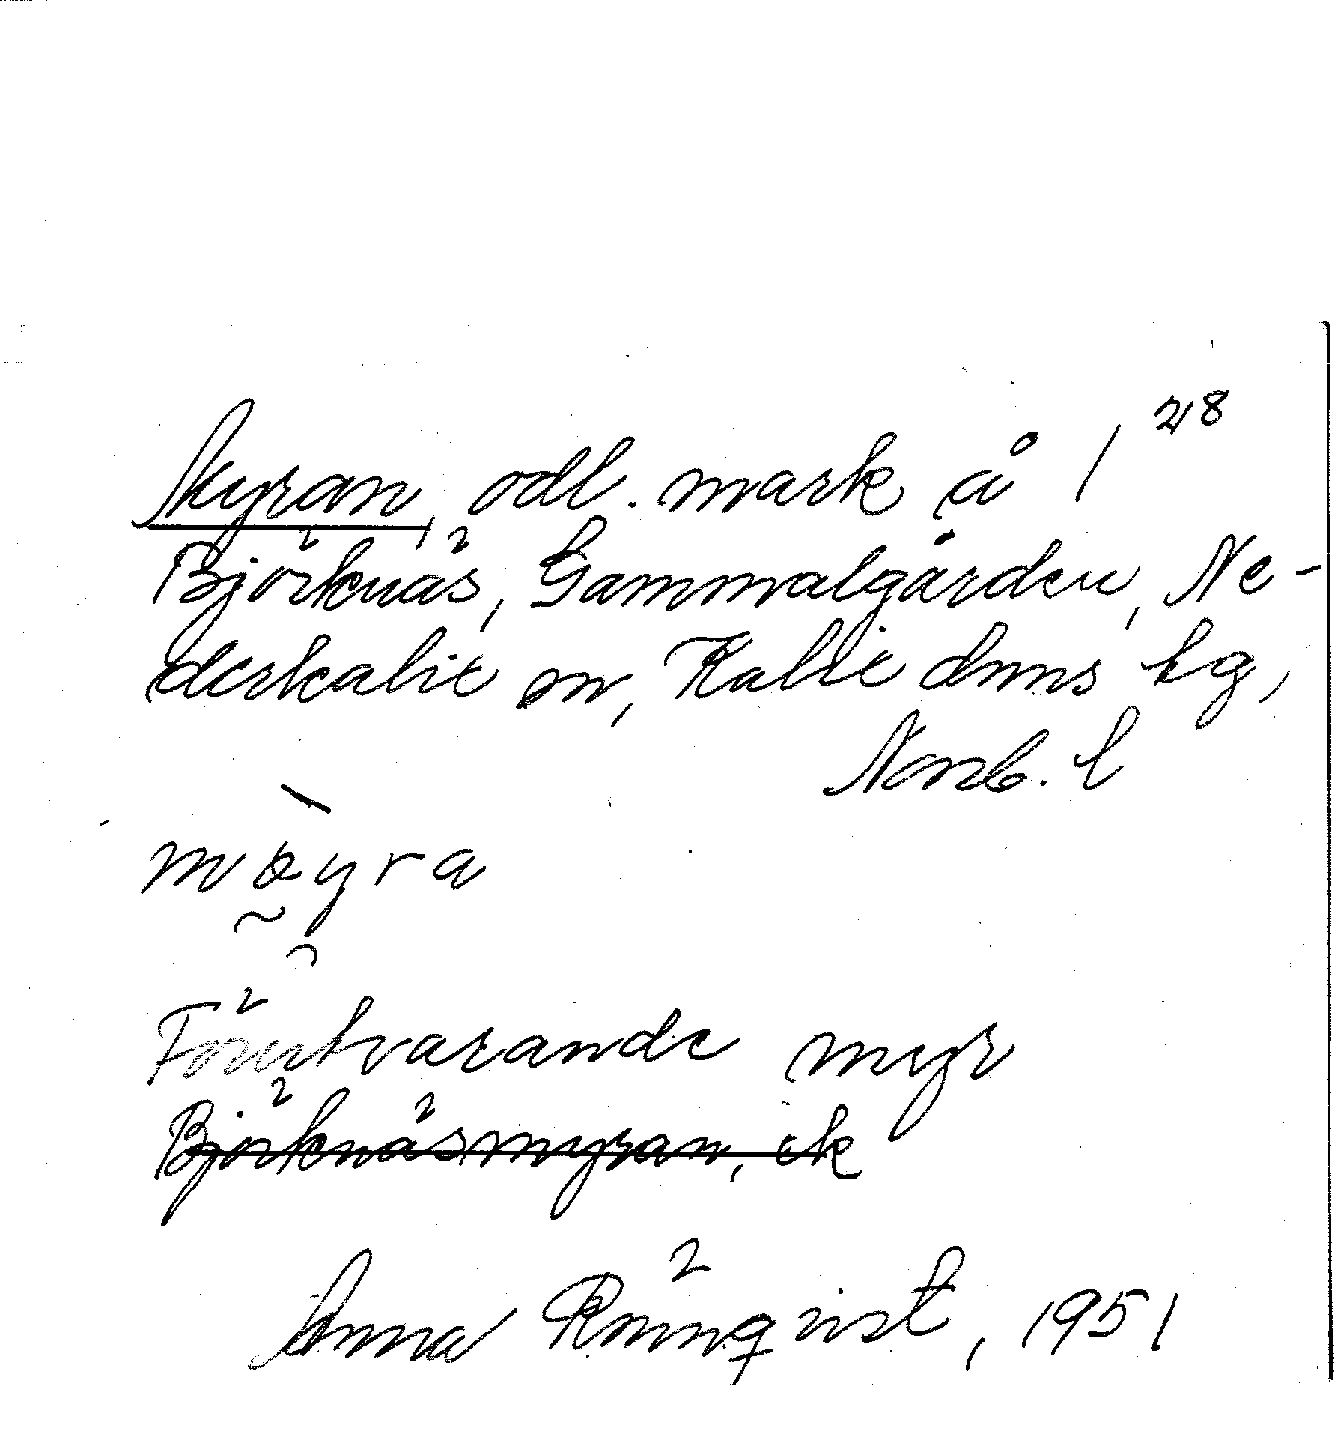 Myran, odl. mark å 1²⁸
Björknäs, Gammalgården, Ne-
derkalix sn, Kalix dnms tg,
Norrb. l
möyra
Förutvarande myr
~~Björknäsmyran, ek~~
Anna Rönnqvist, 1951